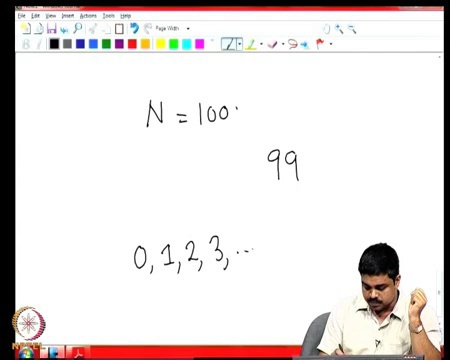 File Edit View Insert Actions Tools Help
Page Width
B I
N = 100.
99
0, 1, 2, 3, ...